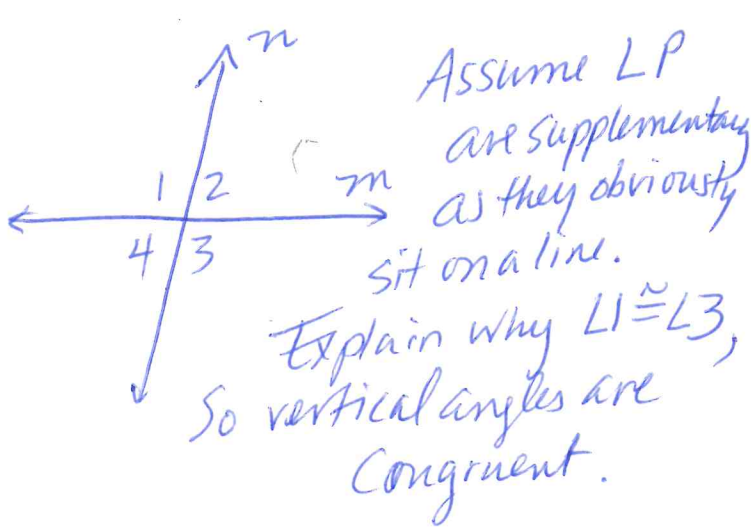 n
Assume LP
are supplementary
1 2 m as they obviously
4 3 sit on a line.
Explain why ∠1≅∠3,
So vertical angles are
Congruent.